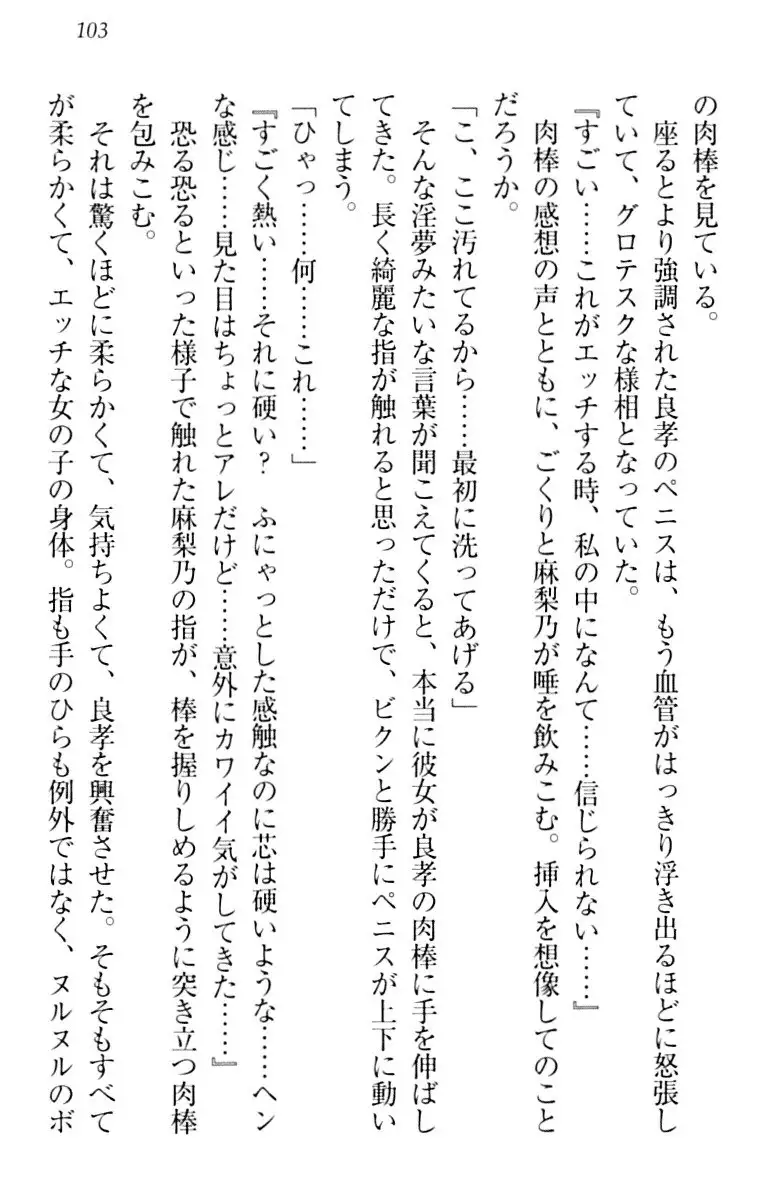 103
の肉棒を見ている。
　座るとより強調された良孝のペニスは、もう血管がはっきり浮き出るほどに怒張し
ていて、グロテスクな様相となっていた。
『すごい……これがエッチする時、私の中になんて……信じられない……』
　肉棒の感想の声とともに、ごくりと麻梨乃が唾を飲みこむ。挿入を想像してのこと
だろうか。
「こ、ここ汚れてるから……最初に洗ってあげる」
　そんな淫夢みたいな言葉が聞こえてくると、本当に彼女が良孝の肉棒に手を伸ばし
てきた。長く綺麗な指が触れると思っただけで、ビクンと勝手にペニスが上下に動い
てしまう。
「ひゃっ……何……これ……」
『すごく熱い……それに硬い？　ふにゃっとした感触なのに芯は硬いような……ヘン
な感じ……見た目はちょっとアレだけど……意外にカワイイ気がしてきた……』
　恐る恐るといった様子で触れた麻梨乃の指が、棒を握りしめるように突き立つ肉棒
を包みこむ。
　それは驚くほどに柔らかくて、気持ちよくて、良孝を興奮させた。そもそもすべて
が柔らかくて、エッチな女の子の身体。指も手のひらも例外ではなく、ヌルヌルのボ